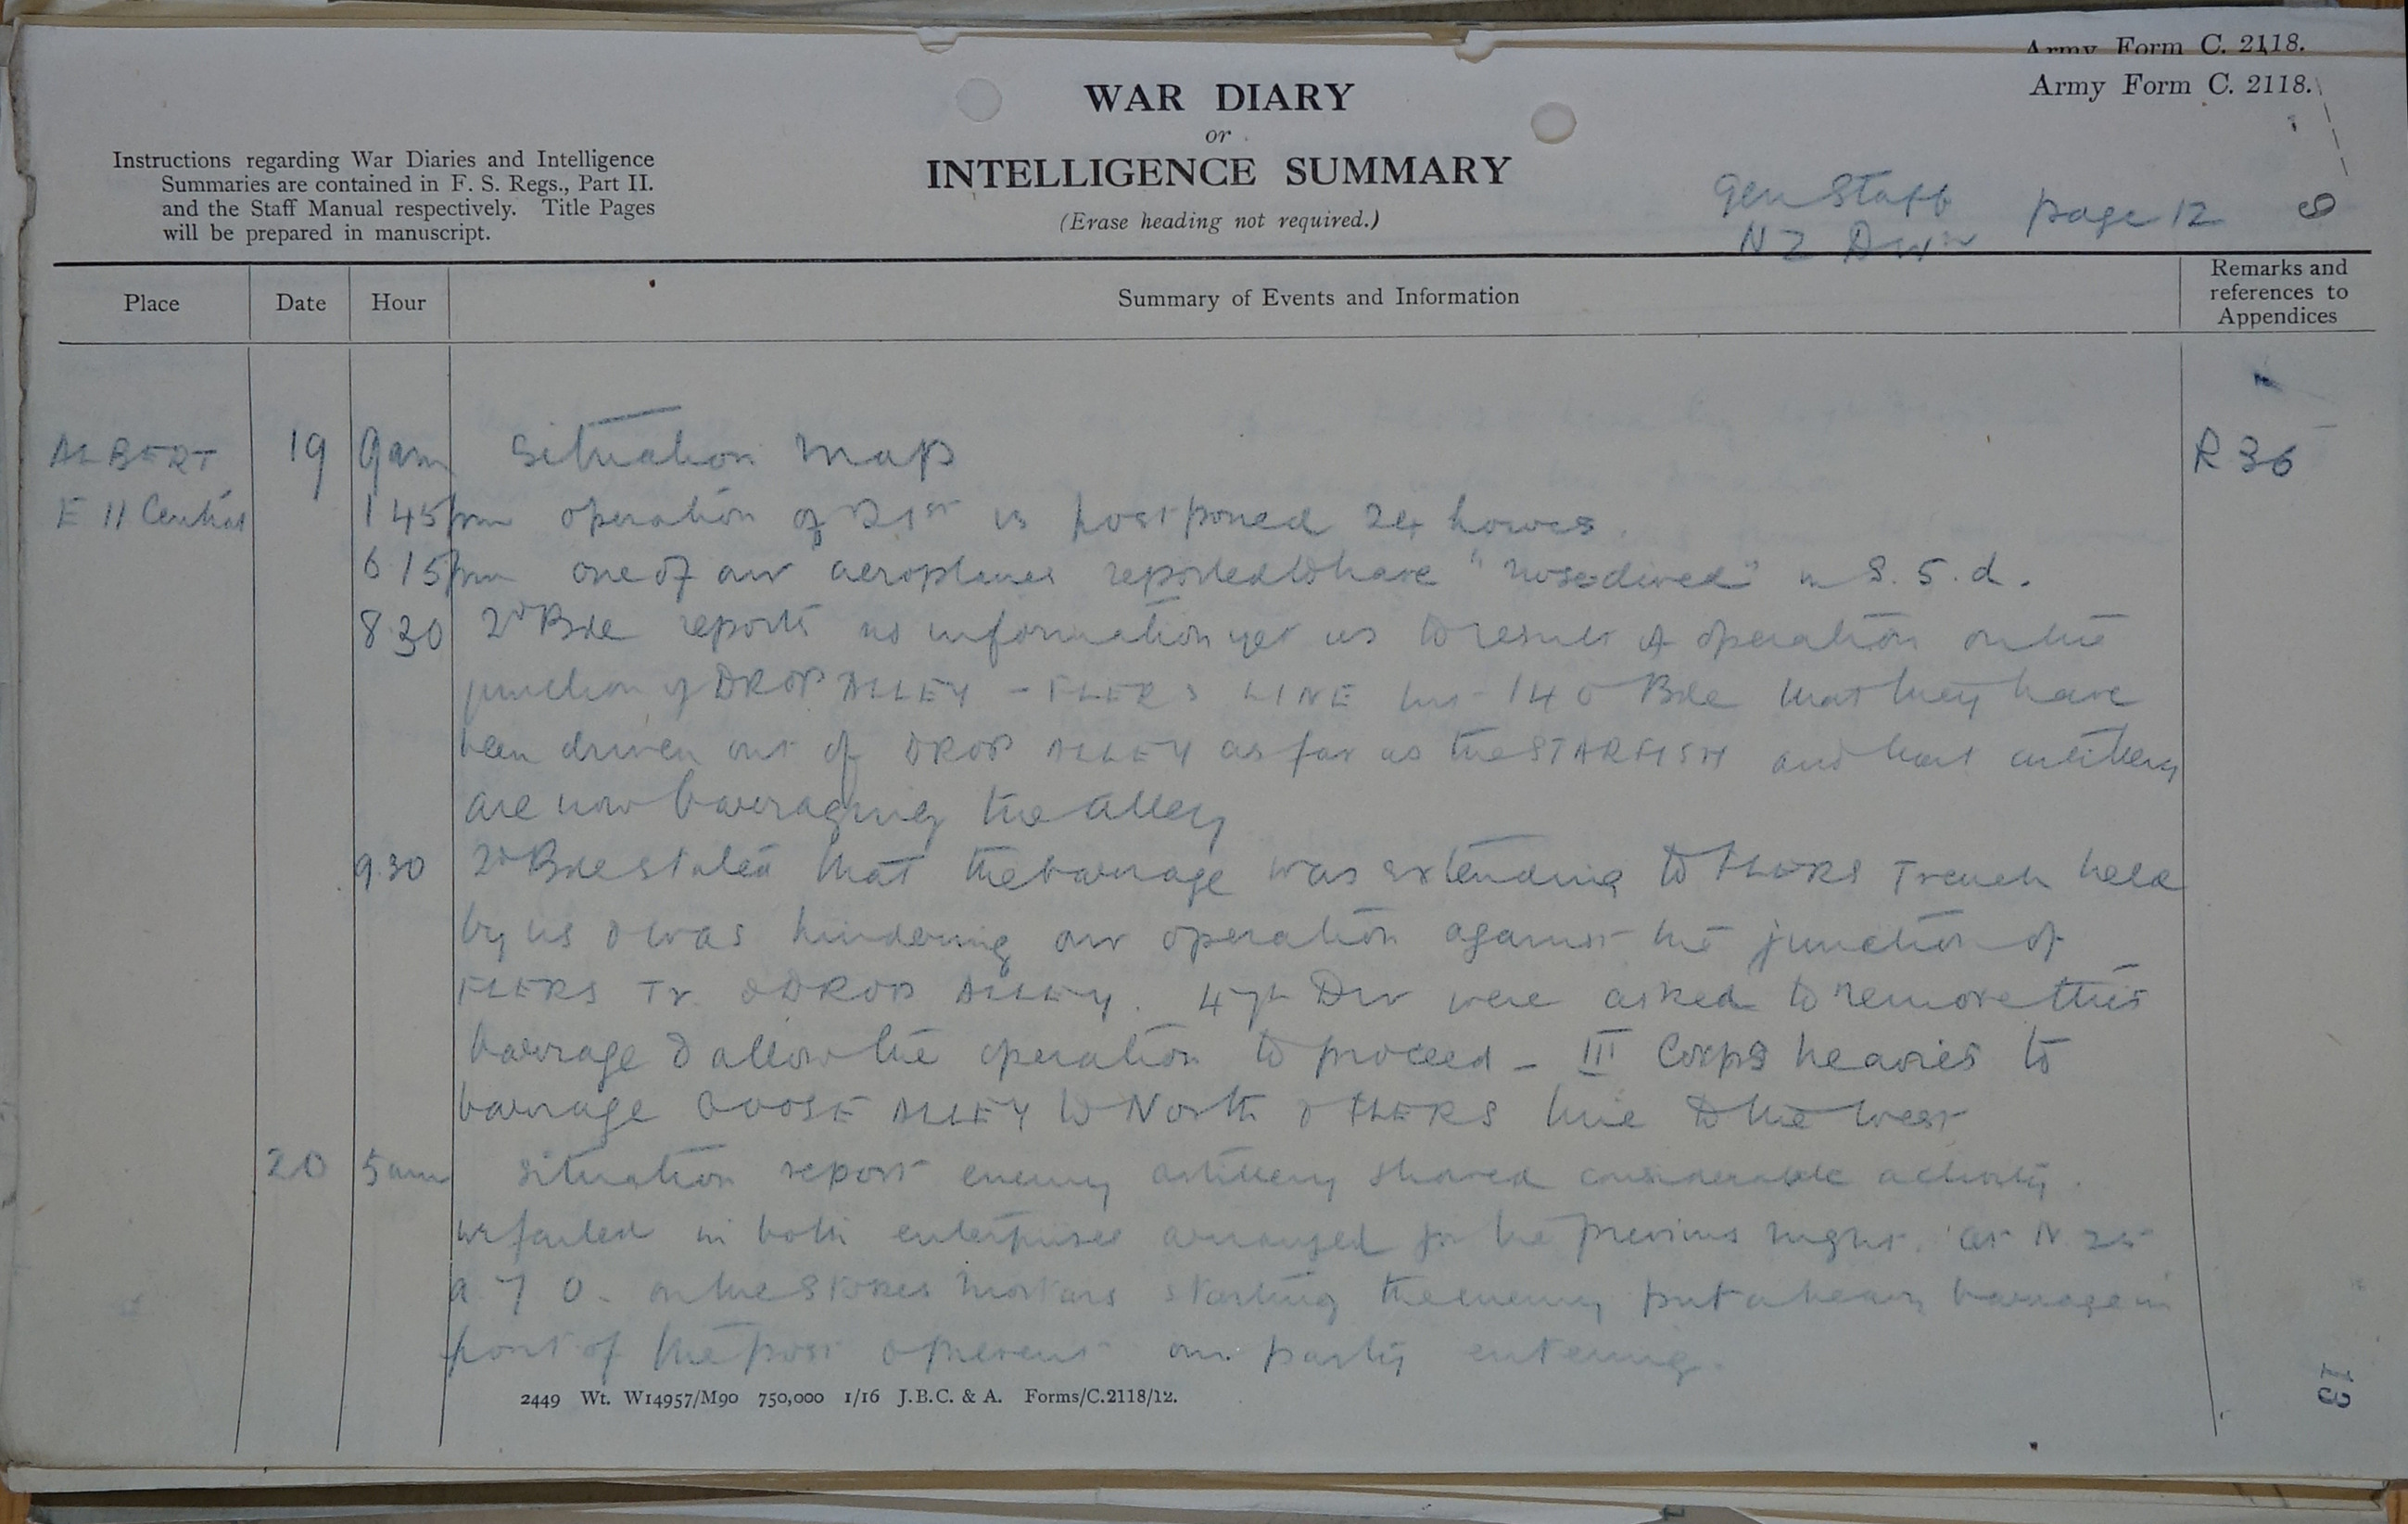 Army Form C. 2118.
Army Form C. 2118.
WAR DIARY
or
INTELLIGENCE SUMMARY
(Erase heading not required.)
Instructions regarding War Diaries and Intelligence
Summaries are contained in F. S. Regs., Part II.
and the Staff Manual respectively. Title Pages
will be prepared in manuscript.
Gen Staff
NZ Divn
page 12
9
Place Date Hour Summary of Events and Information Remarks and
references to
Appendices
ALBERT 19 9am Situation Map R 36
E 11 Central 1 45 pm operation of 21st is postponed 24 hours.
6 15 pm one of our aeroplanes reported to have "nosedived" in S. 5. d.
8.30 2d Bde reports no information yet as to result of operation on the
junction of DROP ALLEY - FLERS LINE but 140 Bde that they have
been driven out of DROP ALLEY as far as the STARFISH and that artillery
are now barraging the alley
9.30 2d Bde stated that the barrage was extending to FLERS Trench held
by us & was hindering our operation against the junction of
FLERS Tr. & DROP ALLEY. 47th Div were asked to remove this
barrage & allow the operation to proceed - III Corps heavies to
barrage GOOSE ALLEY to North & FLERS line to the west
20 5am situation report enemy artillery showed considerable activity.
We failed in both enterprises arranged for the previous night. at N 25
a 7 0 - on the Stokes Mortars starting the enemy put a heavy barrage in
front of the post & prevent our party entering.
2449 Wt. W14957/M90 750,000 1/16 J.B.C. & A. Forms/C.2118/12.
13